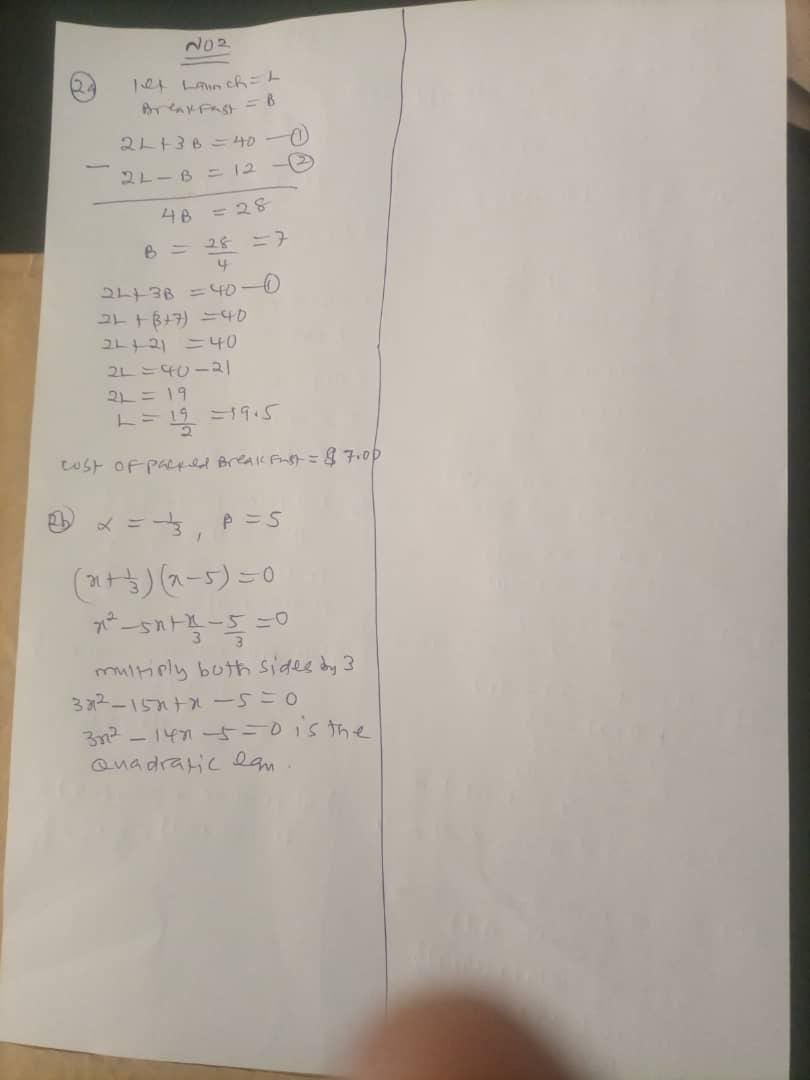 NO2
2a let Launch = L
Breakfast = B
2L + 3B = 40 — ①
— 2L — B = 12 — ②
4B = 28
B = 28/4 = 7
2L + 3B = 40 — ①
2L + (3+7) = 40
2L + 21 = 40
2L = 40 — 21
2L = 19
L = 19/2 = 19.5
cost of packed Breakfast = $ 7.00
2b α = -1/3, β = 5
(x + 1/3)(x - 5) = 0
x² - 5x + x/3 - 5/3 = 0
multiply both sides by 3
3x² - 15x + x - 5 = 0
3x² - 14x - 5 = 0 is the
Quadratic eqn.